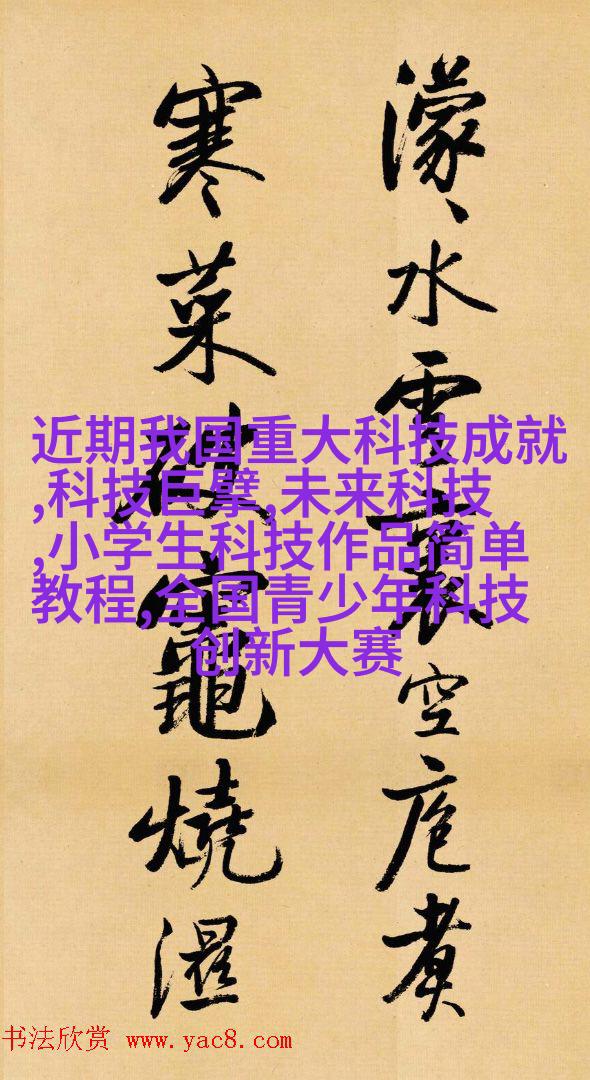 濛、水雲裏空庖煮
寒菜破竈燒濕
近期我国重大科技成就
,科技巨擘,未来科技
,小学生科技作品简单
教程,全国青少年科技
创新大赛
书法欣赏 www.yac8.com